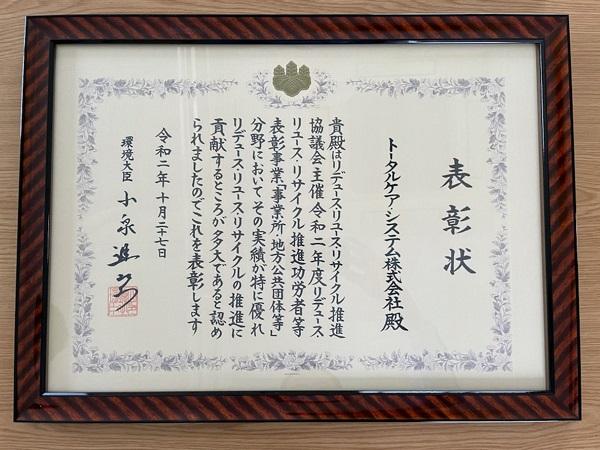 表彰状
トータルケア・システム株式会社 殿
貴殿はリデュース・リユース・リサイクル推進
協議会主催 令和二年度リデュース・
リユース・リサイクル推進功労者等
表彰事業「事業所・地方公共団体等」
分野において その実績が特に優れ
リデュース・リユース・リサイクルの推進に
貢献するところが多大であると認め
られましたのでこれを表彰します
令和二年十月二十七日
環境大臣 小泉進次郎